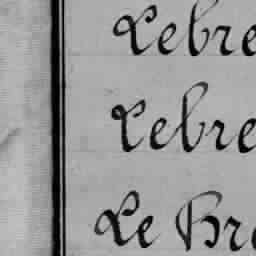 Lebre
Lebre
Le Bre